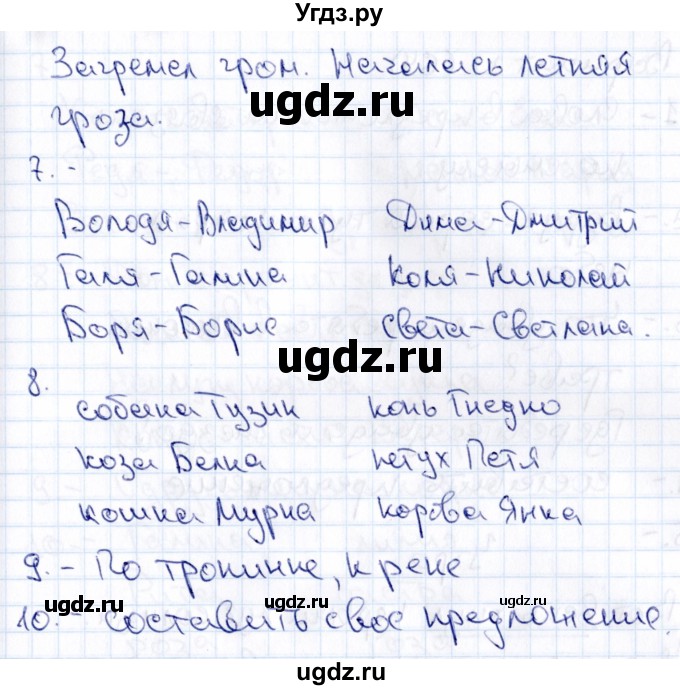 Угдз.ру
Загремел гром. Началась летняя
ugdz.ru
гроза.
7. -
Володя - Владимир Дима - Дмитрий
Галя - Галина Коля - Николай
Боря - Борис Света - Светлана.
ugdz.ru
8.
собака Тузик конь Гнедко
коза Белка петух Петя
ugdz.ru
кошка Мурка корова Янка
9. - По тропинке, к реке
ugdz.ru ugdz.ru
10. - составить свое предложение.
ugdz.ru